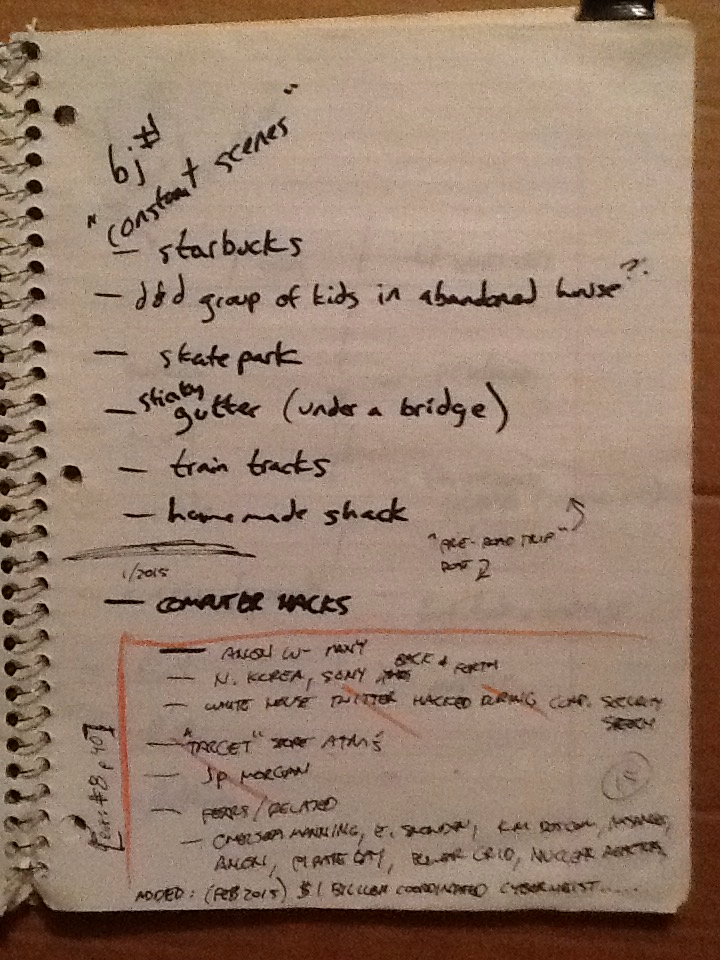 bj#
"constant scenes"
— starbucks
— d&d group of kids in abandoned house?
— skate park
— gutter (under a bridge)
— train tracks
— homemade shack
"PRE-ROAD TRIP"
1/2015
— COMPUTER HACKS
— ANON W- MANY
— N. KOREA, SONY BACK & FORTH
— WHITE HOUSE TWITTER HACKED DURING COMP. SECURITY
SPEECH
— "TARGET" STORE ATMS
— JP MORGAN
15
— FEARS/RELATED
— CHELSEA MANNING, E. SNOWDEN, KIM DOTCOM,
ANON, PIRATE BAY, POWER GRID, NUCLEAR REACTOR,
ADDED: (FEB 2015) $1 BILLION COORDINATED CYBERHEIST......
#8 p 40]